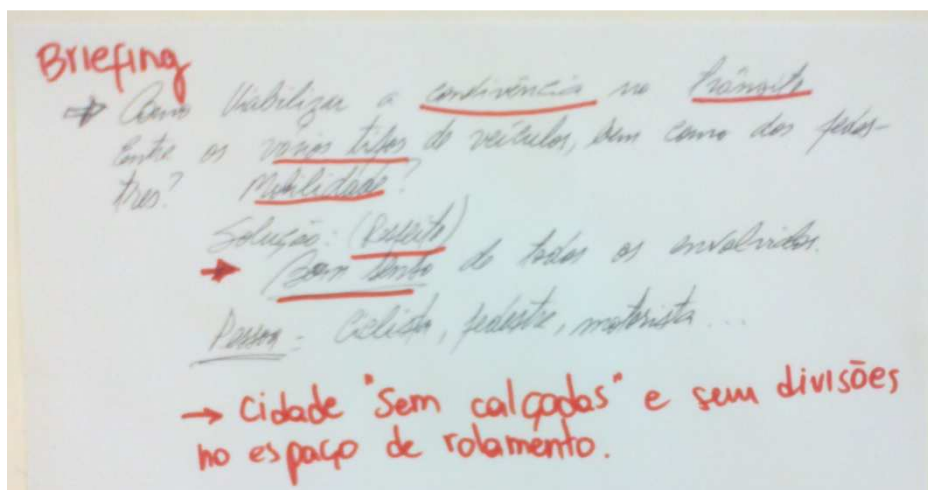 Briefing
→ Como Viabilizar a convivência no trânsito
Entre os vários tipos de veículos, bem como dos pedes-
tres? Mobilidade?
Solução: (Respeito)
→ Bom Senso de todos os envolvidos.
Pessoa = Ciclista, pedestre, motorista...
→ cidade "sem calçadas" e sem divisões
no espaço de rolamento.